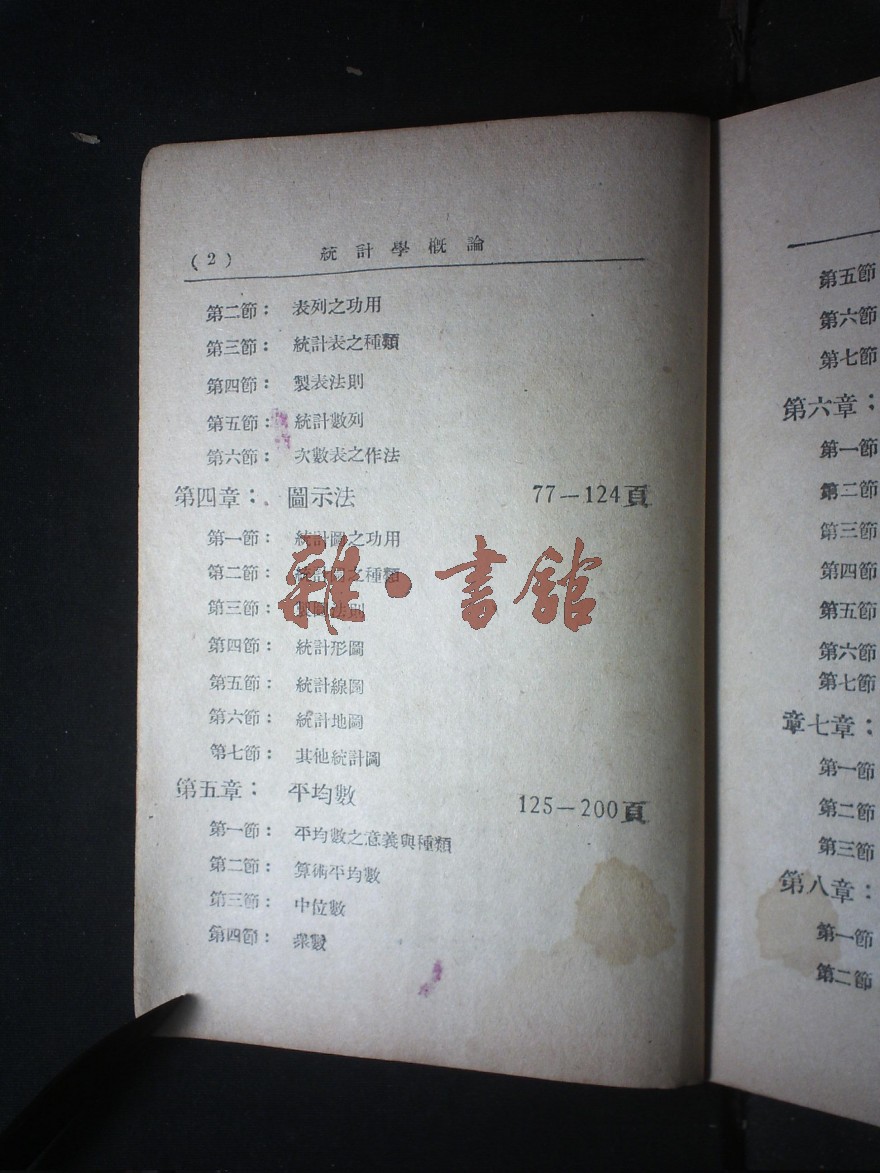 (2) 統計學概論
第二節： 表列之功用
第三節： 統計表之種類
第四節： 製表法則
第五節： 統計數列
第六節： 次數表之作法
第四章： 圖示法 77—124頁
第一節： 統計圖之功用
第二節： 統計圖之種類
第三節： 法則
第四節： 統計形圖
第五節： 統計線圖
第六節： 統計地圖
第七節： 其他統計圖
第五章： 平均數 125—200頁
第一節： 平均數之意義與種類
第二節： 算術平均數
第三節： 中位數
第四節： 衆數
雜·書館
第五節
第六節
第七節
第六章：
第一節
第二節
第三節
第四節
第五節
第六節
第七節
章七章：
第一節
第二節
第三節
第八章：
第一節
第二節